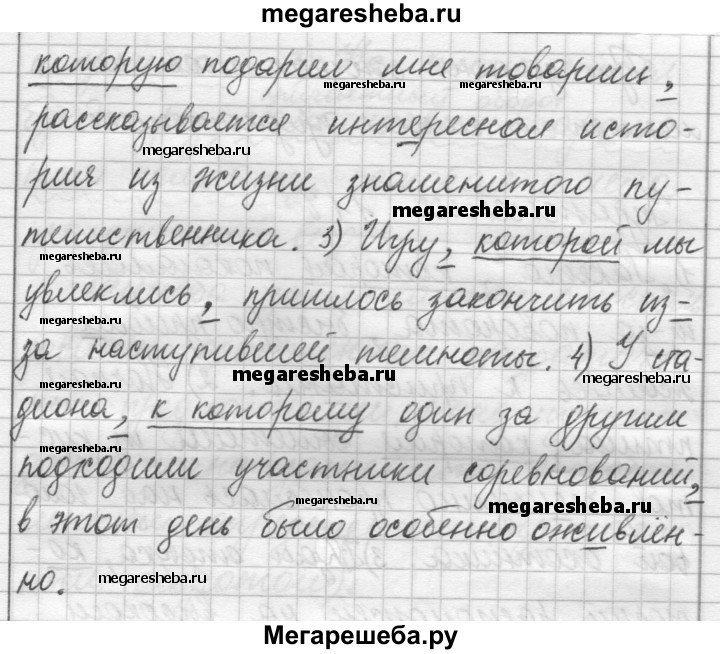 megaresheba.ru
которую подарил мне товарищ,
megaresheba.ru megaresheba.ru
рассказывается интересная исто-
megaresheba.ru
рия из жизни знаменитого пу-
megaresheba.ru
тешественника. 3) Игру, которой мы
megaresheba.ru megaresheba.ru
увлеклись, пришлось закончить из-
megaresheba.ru
за наступившей темноты. 4) У ста-
megaresheba.ru megaresheba.ru
megaresheba.ru
диона, к которому один за другим
megaresheba.ru
подходили участники соревнований,
megaresheba.ru megaresheba.ru
в этот день было особенно оживлён-
megaresheba.ru megaresheba.ru
но. megaresheba.ru
Мегарешеба.ру